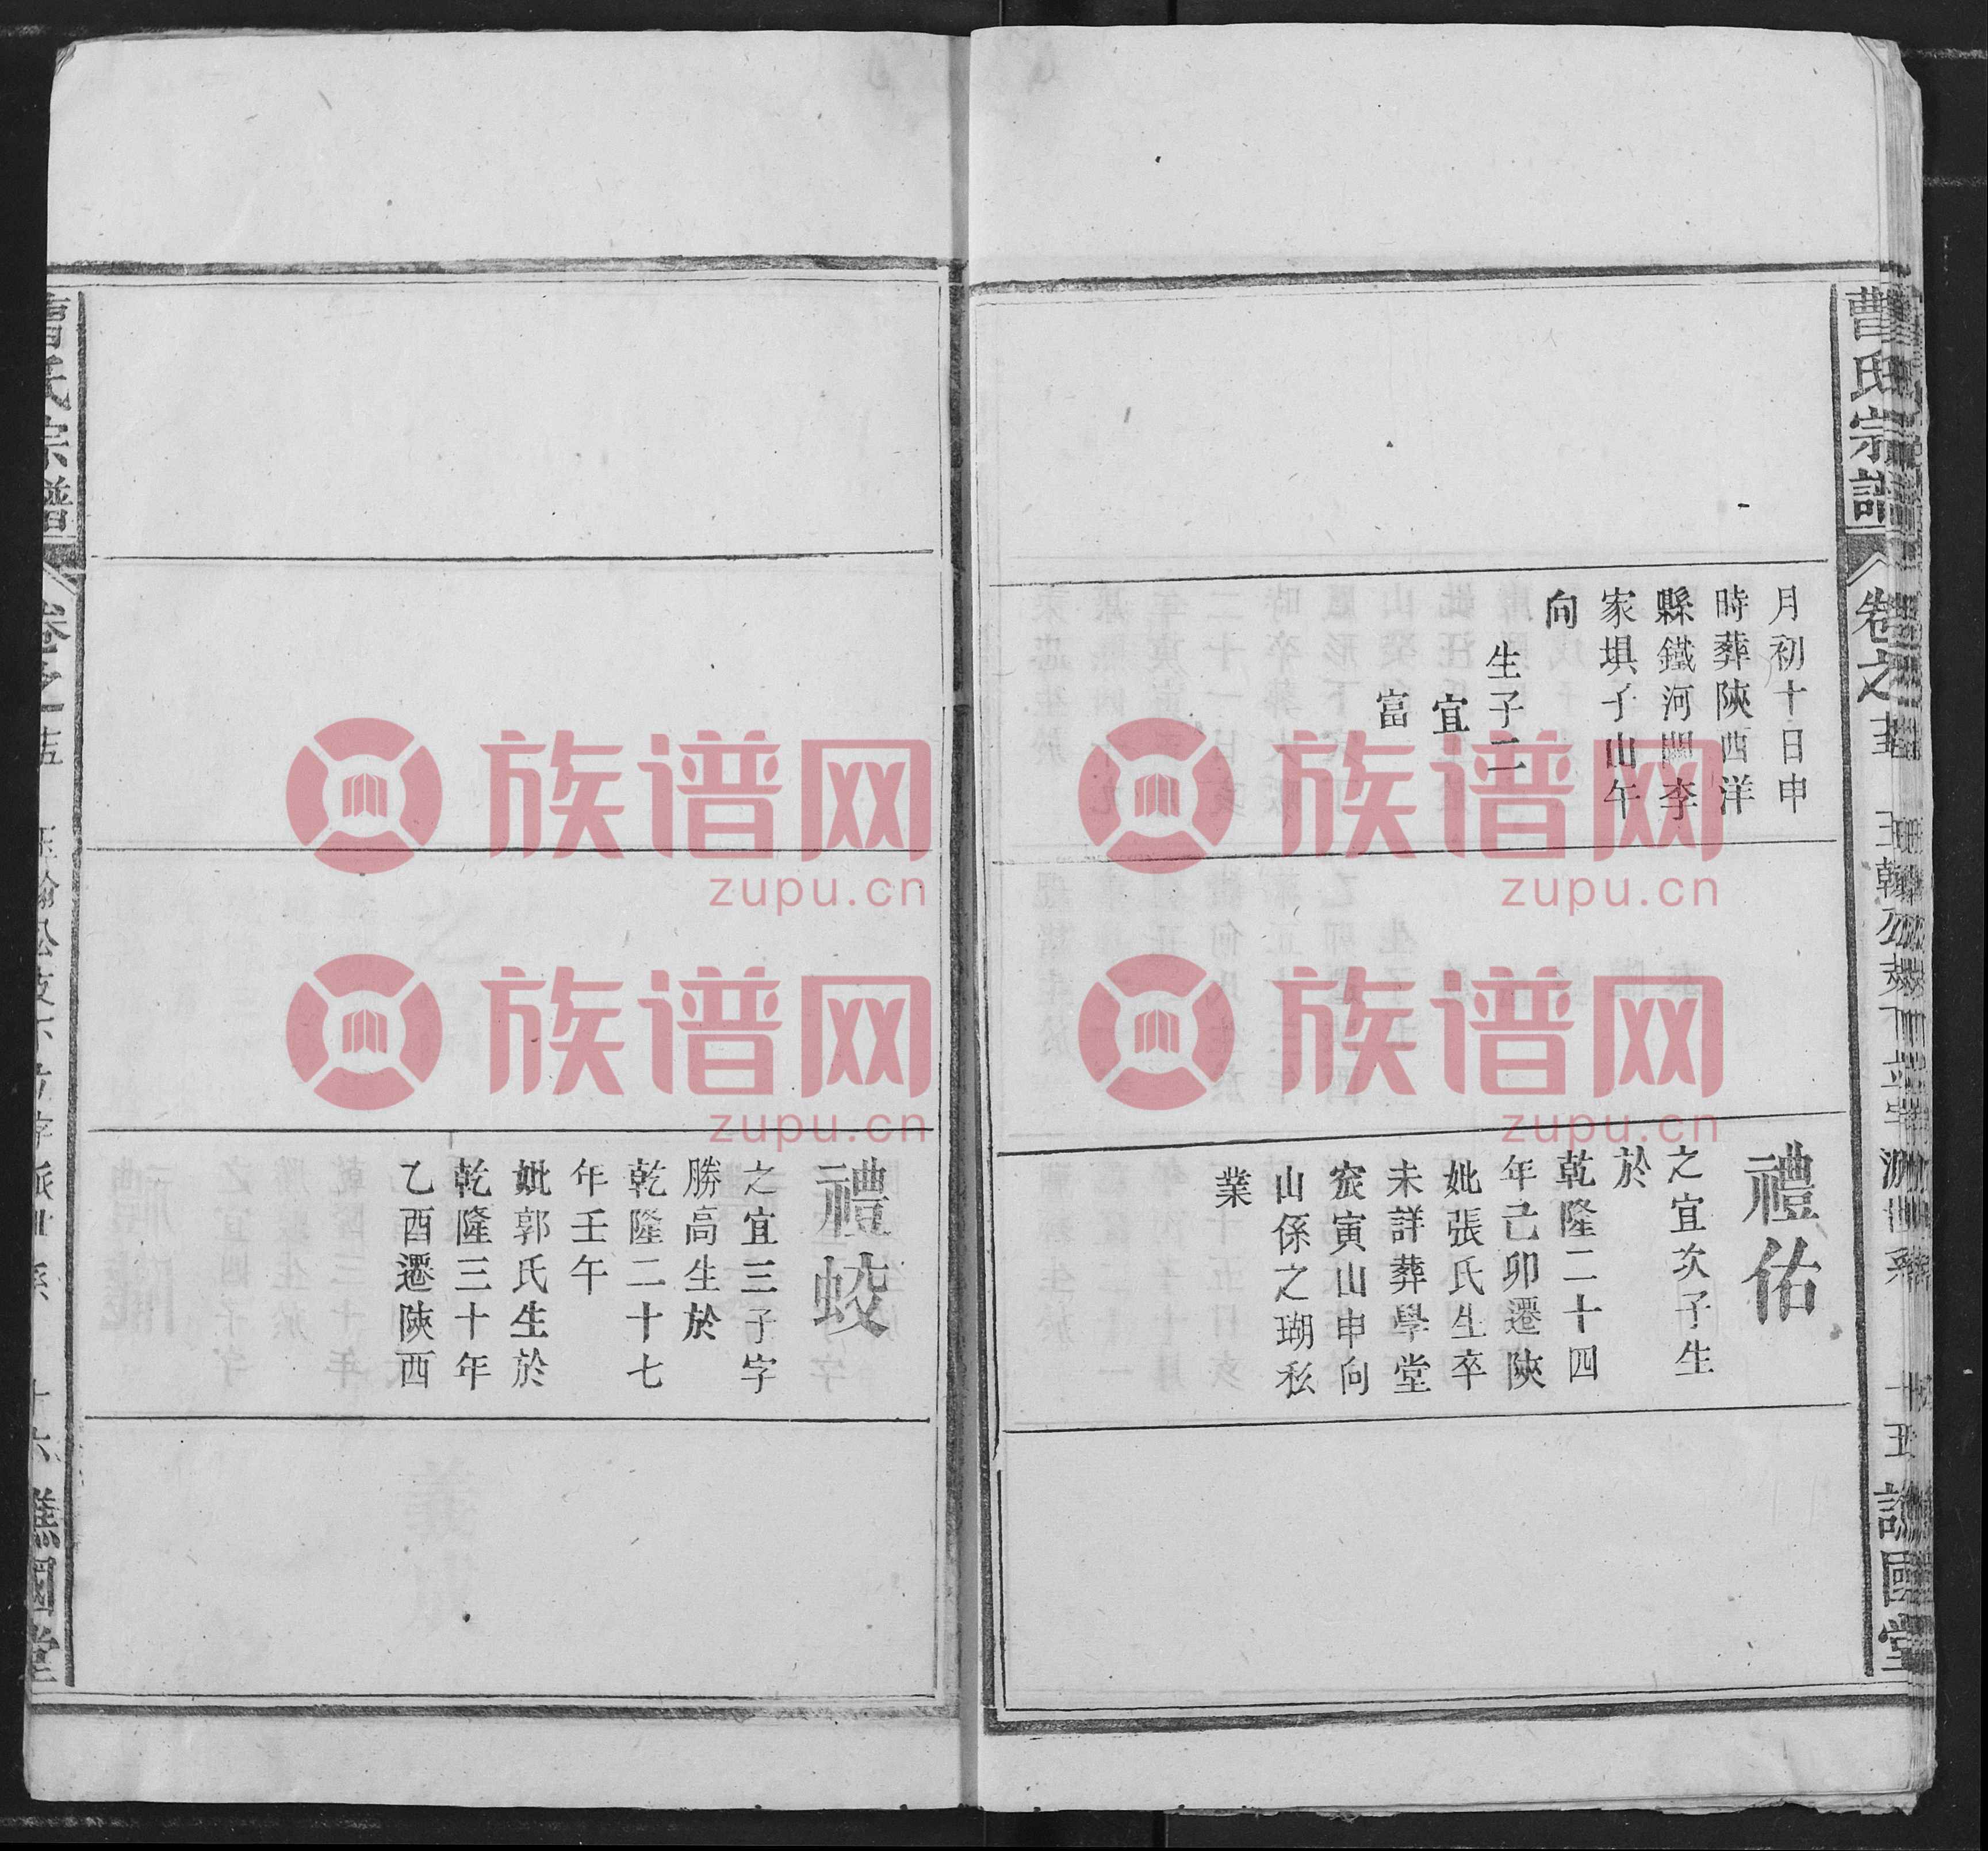 曹氏宗譜
卷之
譙國堂
月初十日申
時葬陝西洋
縣鐵河關李
家垻子山午
向
生子二
宜
富
禮佑
之宜次子生
於
乾隆二十四
年己卯遷陝
妣張氏生卒
未詳葬學堂
寅山申向
山係之瑚私
業
禮蛟
之宜三子字
勝高生於
乾隆二十七
年壬午
妣郭氏生於
乾隆三十年
乙酉遷陝西
氏宗譜
卷之
十六
國堂
族谱网
zupu.cn
族谱网
zupu.cn
族谱网
zupu.cn
族谱网
zupu.cn